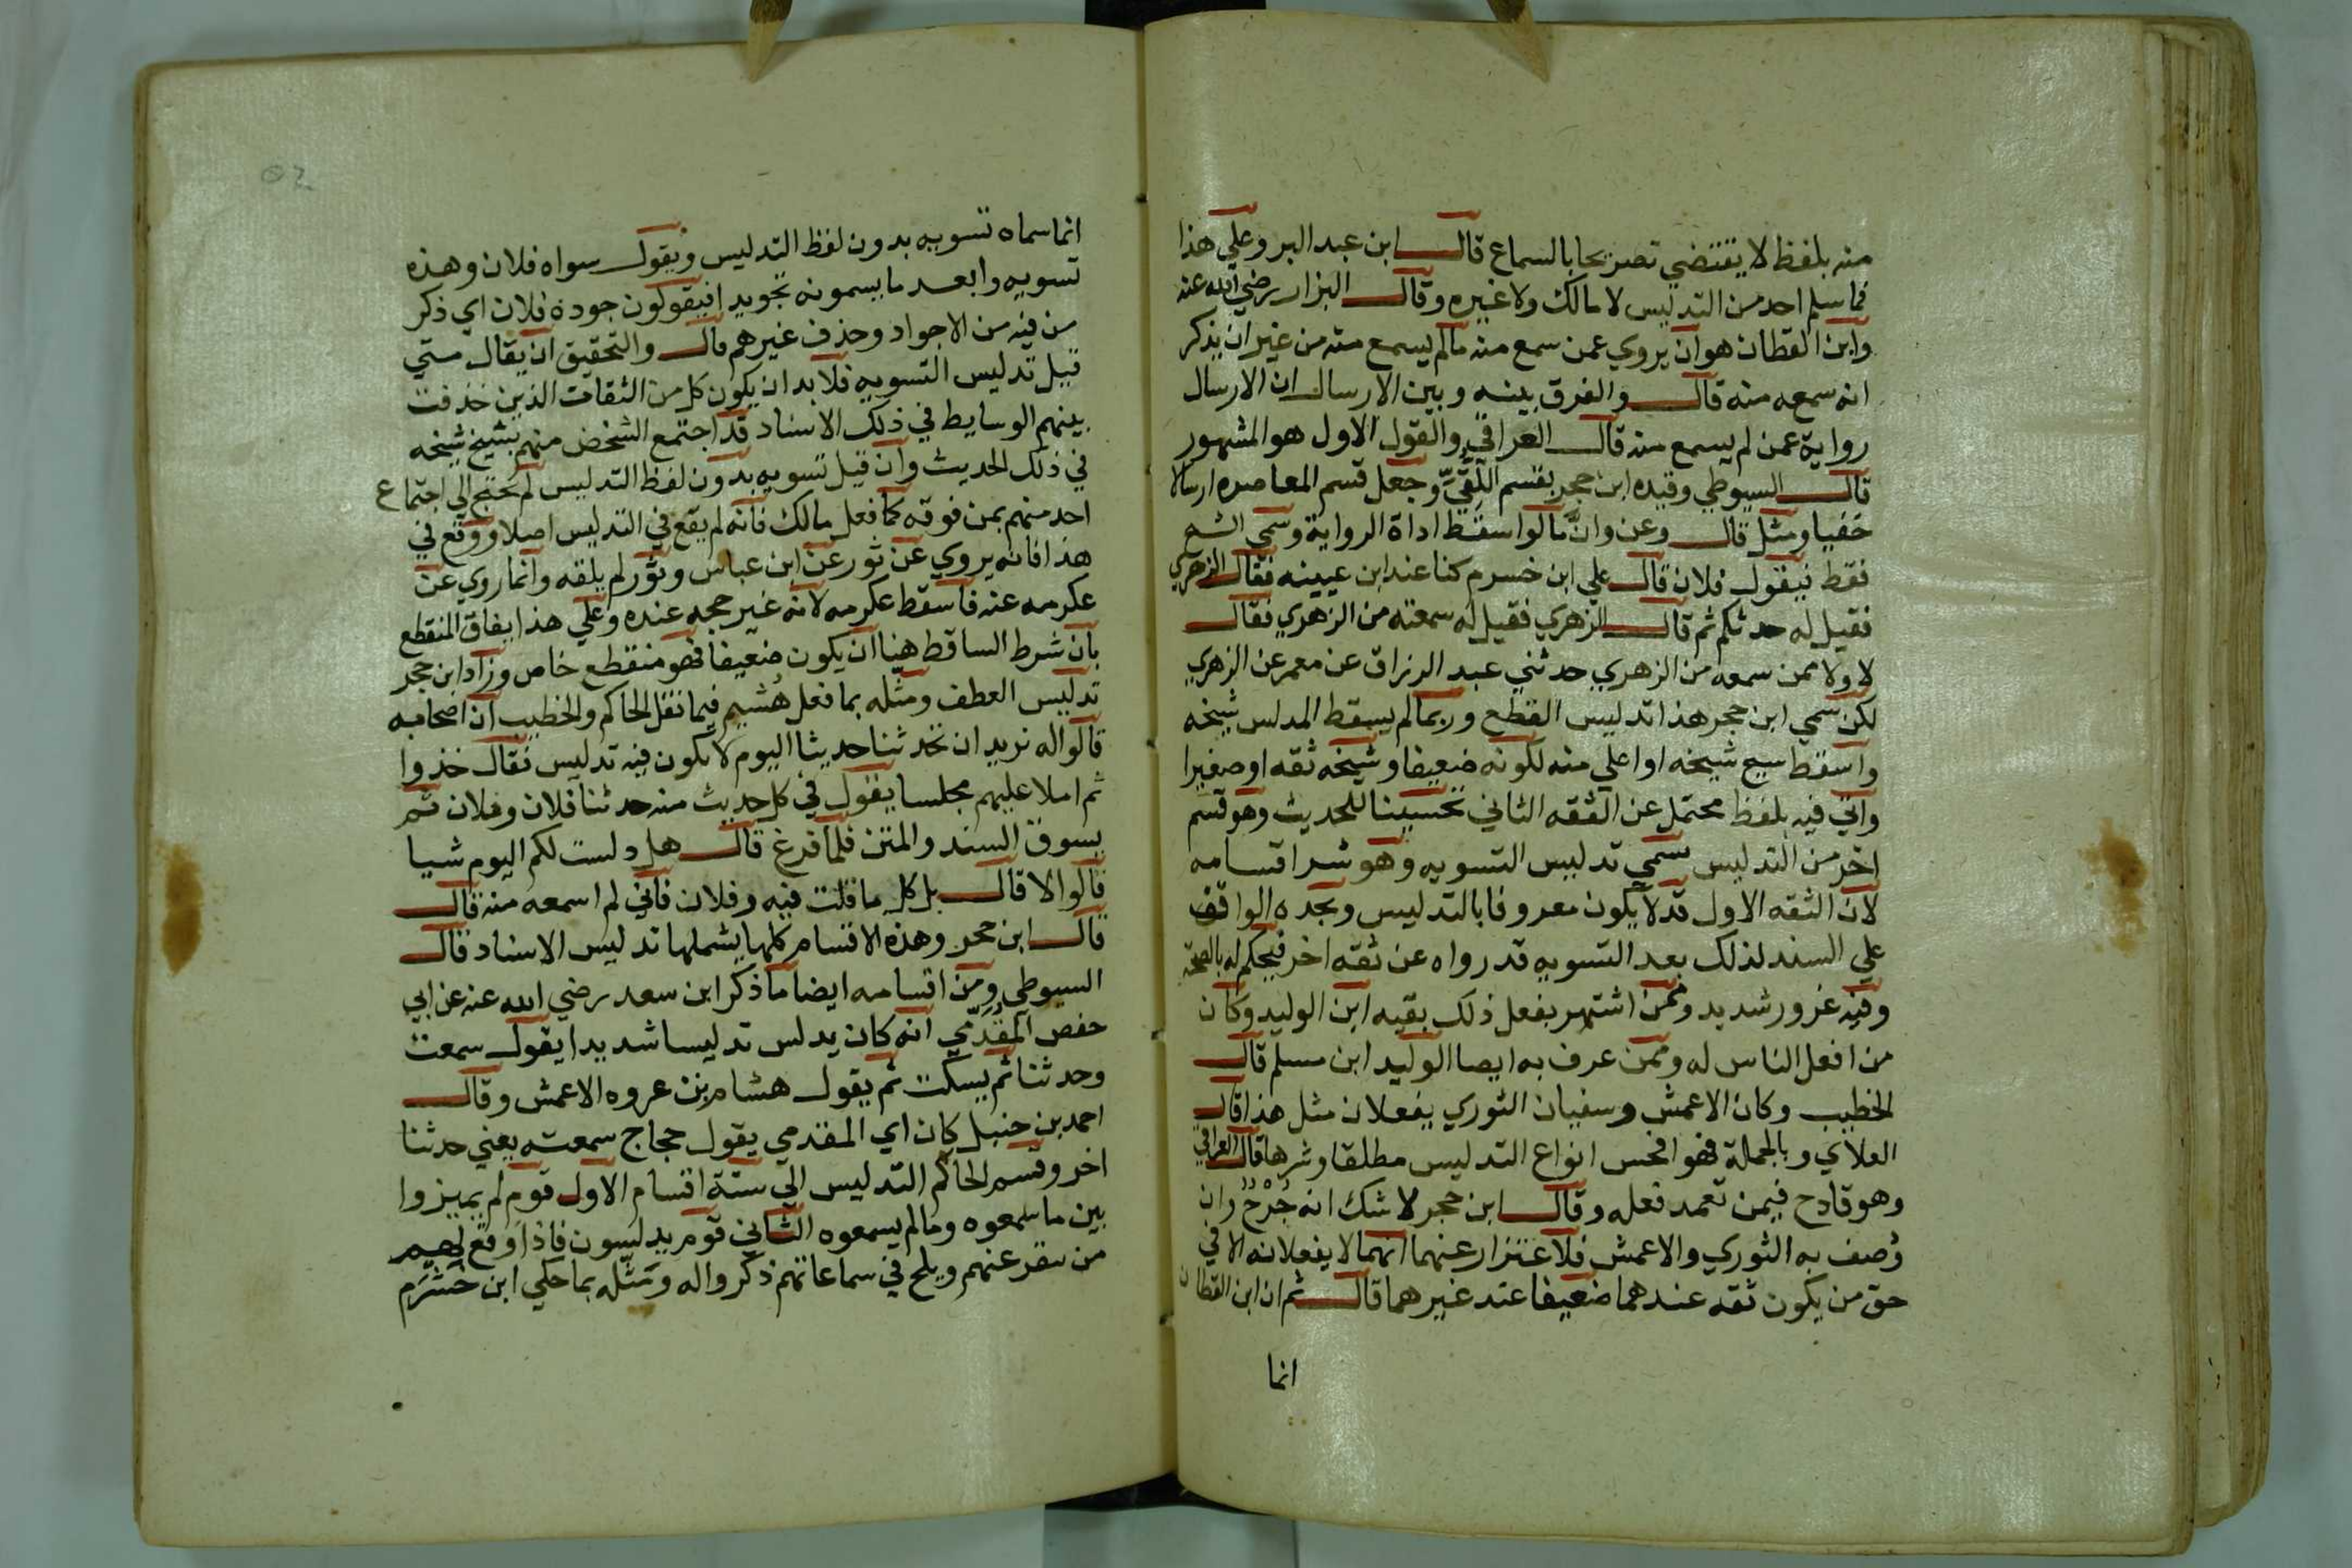 منه بلفظ لا يقتضي تصريحا بالسماع قال ابن عبد البر وعلي هذا
فما سلم احد من التدليس لا مالك ولا غيره وقال البزار رضي الله عنه
وابن القطان هو ان يروي عمن سمع منه مالم يسمع منه من غير ان يذكر
انه سمعه منه قال والفرق بينه وبين الارسال ان الارسال
رواية عمن لم يسمع منه قال العراقي والقول الاول هو المشهور
قال السيوطي وقيده ابن حجر بقسم اللُّقيِّ وجعل قسم المعاصره ارسالا
خفيا ومثل قال وعن وانَّ مالوا سقط اداة الرواية وسمي الشيخ
فقط فيقول فلان قال علي ابن خسرم كنا عند ابن عيينه فقال الزهري
فقيل له حدثكم ثم قال الزهري فقيل له سمعته من الزهري فقال
لا ولا ممن سمعه من الزهري حدثني عبد الرزاق عن معمر عن الزهري
لكن سمي ابن حجر هذا تدليس القطع وربما لم يسقط المدلس شيخه
واسقط شيخ شيخه او اعلي منه لكونه ضعيفا وشيخه ثقه او صغيرا
واتي فيه بلفظ محتمل عن الثقه الثاني تحسينا للحديث وهو قسم
اخر من التدليس سمي تدليس التسويه وهو شر اقسامه
لان الثقه الاول قد لا يكون معروفا بالتدليس ويجده الواقف
علي السند لذلك بعد التسويه قد رواه عن ثقه اخر فيحكم له بالصحة
وفيه غرور شديد وممن اشتهر بفعل ذلك بقيه ابن الوليد وكان
من افعل الناس له وممن عرف به ايضا الوليد ابن مسلم قال
الخطيب وكان الاعمش وسفيان الثوري يفعلان مثل هذا قال
العلاي وبالجملة فهو افحس انواع التدليس مطلقا وشرها قال العراقي
وهو قادح فيمن تعمد فعله وقال ابن حجر لا شك انه جُرْحٌ وان
وُصف به الثوري والاعمش فلا عتزار عنهما انهما لا يفعلانه الا في
حق من يكون ثقه عندهما ضعيفا عند غيرهما قال ثم ان ابن القطان
انما
انما سماه تسويه بدون لفظ التدليس ويقول سواه فلان وهذه
تسويه وابعد ما يسمونه تجويدا فيقولون جوده فلان اي ذكر
من فيه من الاجواد وحذف غيرهم قال والتحقيق ان يقال متي
قيل تدليس التسويه فلا بد ان يكون كل من الثقات الذين حذفت
بينهم الوسايط في ذلك الاسناد قد اجتمع الشخص منهم بشيخ شيخه
في ذلك الحديث وان قيل تسويه بدون لفظ التدليس لم يحتج الي اجتماع
احد منهم بمن فوقه كما فعل مالك فانه لم يقع في التدليس اصلا ووقع في
هذا فانه يروي عن ثور عن ابن عباس وثور لم يلقه وانما روي عن
عكرمه عنه فاسقط عكرمه لانه غير حجه عنده وعلي هذا يفاق المنقطع
بان شرط الساقط هنا ان يكون ضعيفا فهو منقطع خاص وزاد ابن حجر
تدليس العطف ومثله بما فعل هُشيم فيما نقل الحاكم والخطيب ان اصحابه
قالوا له نريد ان تحدثنا حديثا اليوم لا يكون فيه تدليس فقال خذوا
ثم املا عليهم مجلسا يقول في كل حديث منه حدثنا فلان وفلان ثم
يسوق السند والمتن فلما فرغ قال هل دلست لكم اليوم شيا
قالوا لا قال بل كل ما قلت فيه وفلان فاني لم اسمعه منه قال
قال ابن حجر وهذه الاقسام كلها يشملها تدليس الاسناد قال
السيوطي ومن اقسامه ايضا ما ذكر ابن سعد رضي الله عنه عن ابي
حفص المقُدَّمي انه كان يدلس تدليسا شديدا يقول سمعت
وحدثنا ثم يسكت ثم يقول هشام بن عروه الاعمش وقال
احمد بن حنبل كان اي المقدمي يقول حجاج سمعته يعني حدثنا
اخر وقسم الحاكم التدليس الي ستة اقسام الاول قوم لم يميزوا
بين ما سمعوه وما لم يسمعوه الثاني قوم يدلسون فاذا وقع لهم
من ينقر عنهم ويلح في سماعاتهم ذكروا له ومَثَّله بما حكي ابن خَشْرَمِ